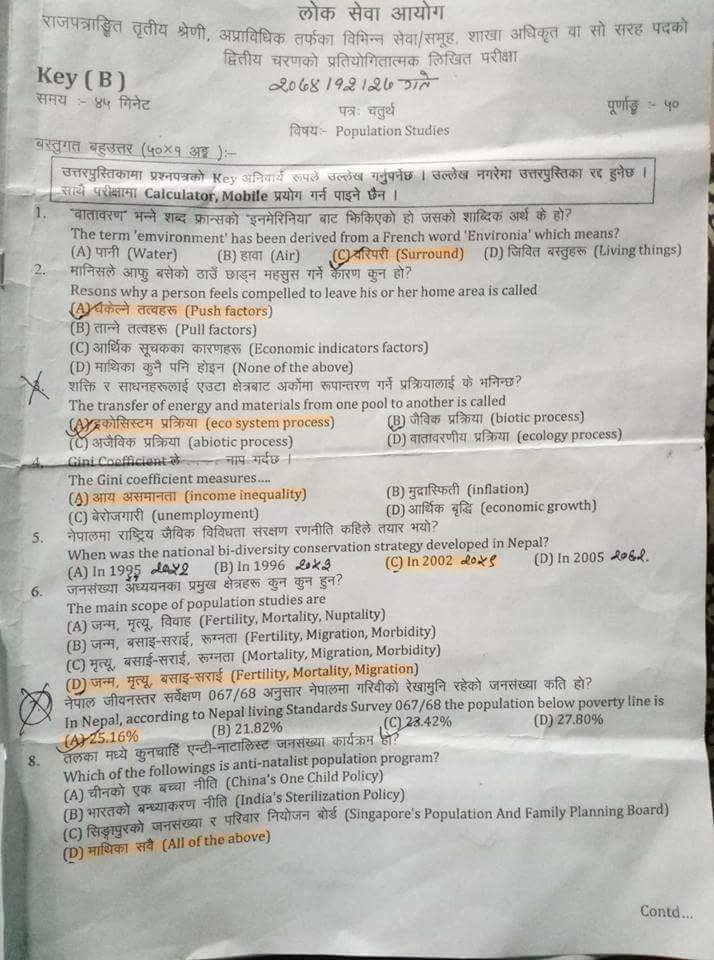 लोक सेवा आयोग
राजपत्राङ्कित तृतीय श्रेणी, अप्राविधिक तर्फका विभिन्न सेवा/समूह, शाखा अधिकृत वा सो सरह पदको
द्वितीय चरणको प्रतियोगितात्मक लिखित परीक्षा
Key ( B )
२०७४।१२।२७ गते
समय :- ४५ मिनेट
पत्र: चतुर्थ
पूर्णाङ्क :- ५०
विषय:- Population Studies
वस्तुगत बहुउत्तर (५०×१ अङ्क ):–
उत्तरपुस्तिकामा प्रश्नपत्रको Key अनिवार्य रूपले उल्लेख गर्नुपर्नेछ । उल्लेख नगरेमा उत्तरपुस्तिका रद्द हुनेछ ।
साथै परीक्षामा Calculator, Mobile प्रयोग गर्न पाइने छैन ।
1. "वातावरण" भन्ने शब्द फ्रान्सको "इनभेरिनिया" बाट झिकिएको हो जसको शाब्दिक अर्थ के हो?
The term 'emvironment' has been derived from a French word 'Environia' which means?
(A) पानी (Water) (B) हावा (Air) (C) वरिपरी (Surround) (D) जिवित बस्तुहरू (Living things)
2. मानिसले आफु बसेको ठाउँ छाड्न महसुस गर्ने कारण कुन हो?
Resons why a person feels compelled to leave his or her home area is called
(A) धकेल्ने तत्वहरू (Push factors)
(B) तान्ने तत्वहरू (Pull factors)
(C) आर्थिक सूचकका कारणहरू (Economic indicators factors)
(D) माथिका कुनै पनि होइन (None of the above)
3. शक्ति र साधनहरूलाई एउटा क्षेत्रबाट अर्कोमा रूपान्तरण गर्ने प्रक्रियालाई के भनिन्छ?
The transfer of energy and materials from one pool to another is called
(A) इकोसिस्टम प्रक्रिया (eco system process) (B) जैविक प्रक्रिया (biotic process)
(C) अजैविक प्रक्रिया (abiotic process) (D) वातावरणीय प्रक्रिया (ecology process)
4. Gini Coefficient ले ........ नाप गर्दछ ।
The Gini coefficient measures....
(A) आय असमानता (income inequality) (B) मुद्रास्फिती (inflation)
(C) बेरोजगारी (unemployment) (D) आर्थिक बृद्धि (economic growth)
5. नेपालमा राष्ट्रिय जैविक विविधता संरक्षण रणनीति कहिले तयार भयो?
When was the national bi-diversity conservation strategy developed in Nepal?
(A) In 1995 २०५२ (B) In 1996 २०५३ (C) In 2002 २०५९ (D) In 2005 २०६२.
6. जनसंख्या अध्ययनका प्रमुख क्षेत्रहरू कुन कुन हुन?
The main scope of population studies are
(A) जन्म, मृत्यू, विवाह (Fertility, Mortality, Nuptality)
(B) जन्म, बसाइ-सराई, रूग्नता (Fertility, Migration, Morbidity)
(C) मृत्यू, बसाई-सराई, रूग्नता (Mortality, Migration, Morbidity)
(D) जन्म, मृत्यू, बसाइ-सराई (Fertility, Mortality, Migration)
नेपाल जीवनस्तर सर्वेक्षण 067/68 अनुसार नेपालमा गरिवीको रेखामुनि रहेको जनसंख्या कति हो?
In Nepal, according to Nepal living Standards Survey 067/68 the population below poverty line is
(A) 25.16% (B) 21.82% (C) 23.42% (D) 27.80%
8. तलका मध्ये कुनचाहिं एन्टी-नाटालिस्ट जनसंख्या कार्यक्रम हो?
Which of the followings is anti-natalist population program?
(A) चीनको एक बच्चा नीति (China's One Child Policy)
(B) भारतको बन्ध्याकरण नीति (India's Sterilization Policy)
(C) सिङ्गापुरको जनसंख्या र परिवार नियोजन बोर्ड (Singapore's Population And Family Planning Board)
(D) माथिका सवै (All of the above)
Contd...